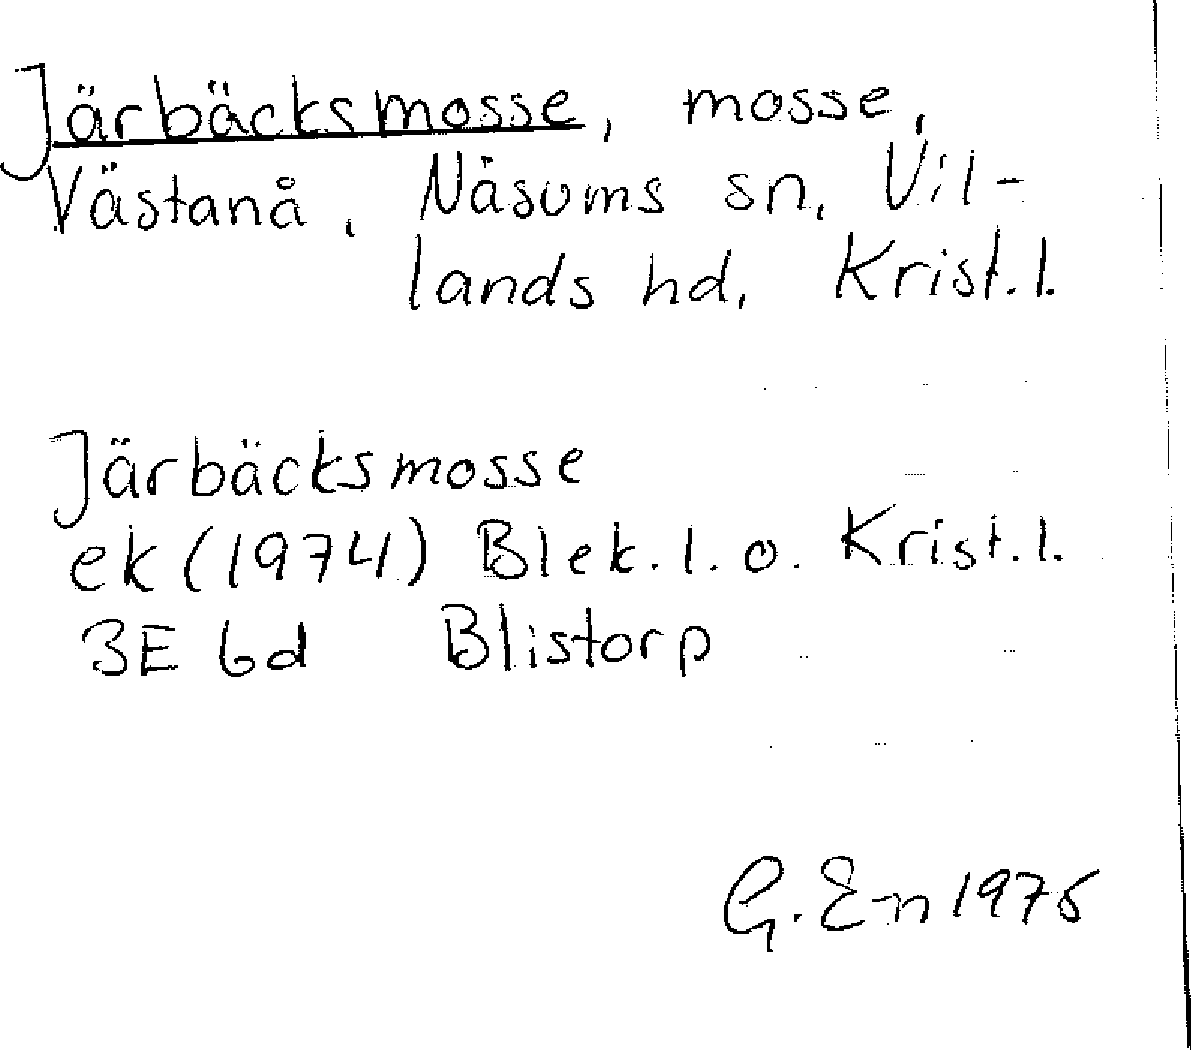 Järbäcksmosse, mosse,
Västanå, Näsums sn, Vil-
lands hd, Krist.l.
Järbäcksmosse
ek (1974) Blek.l. o. Krist.l.
3E 6d Blistorp
G. En 1976